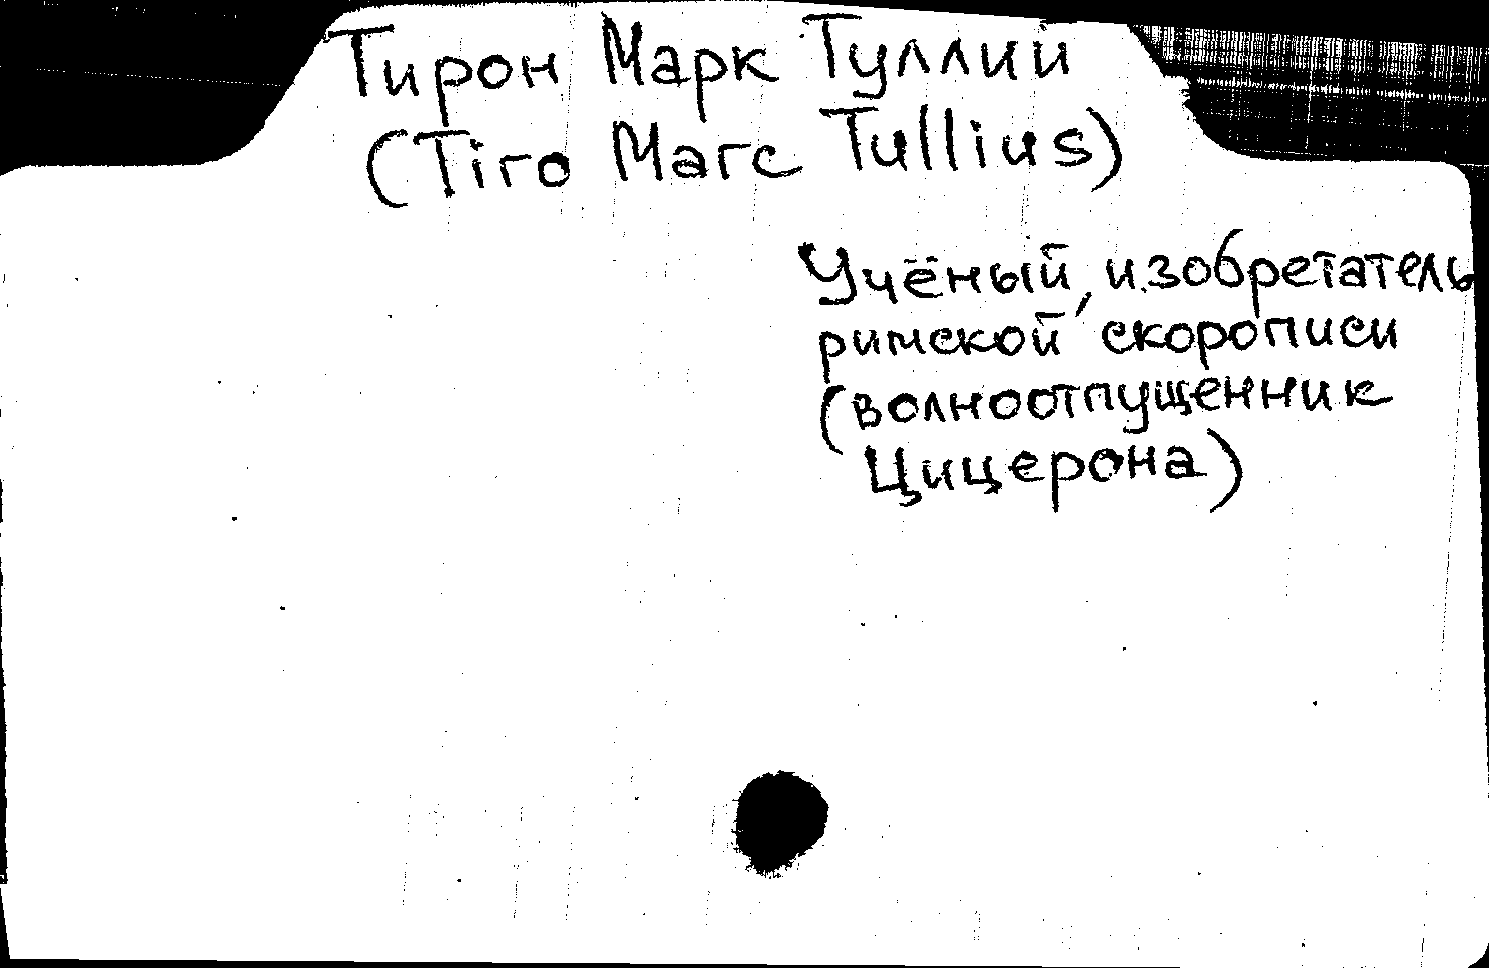 Тирон Марк Туллий
(Tiro Marc Tullius)
Учёный, изобретатель
римской скорописи
(волноотпущенник
Цицерона)